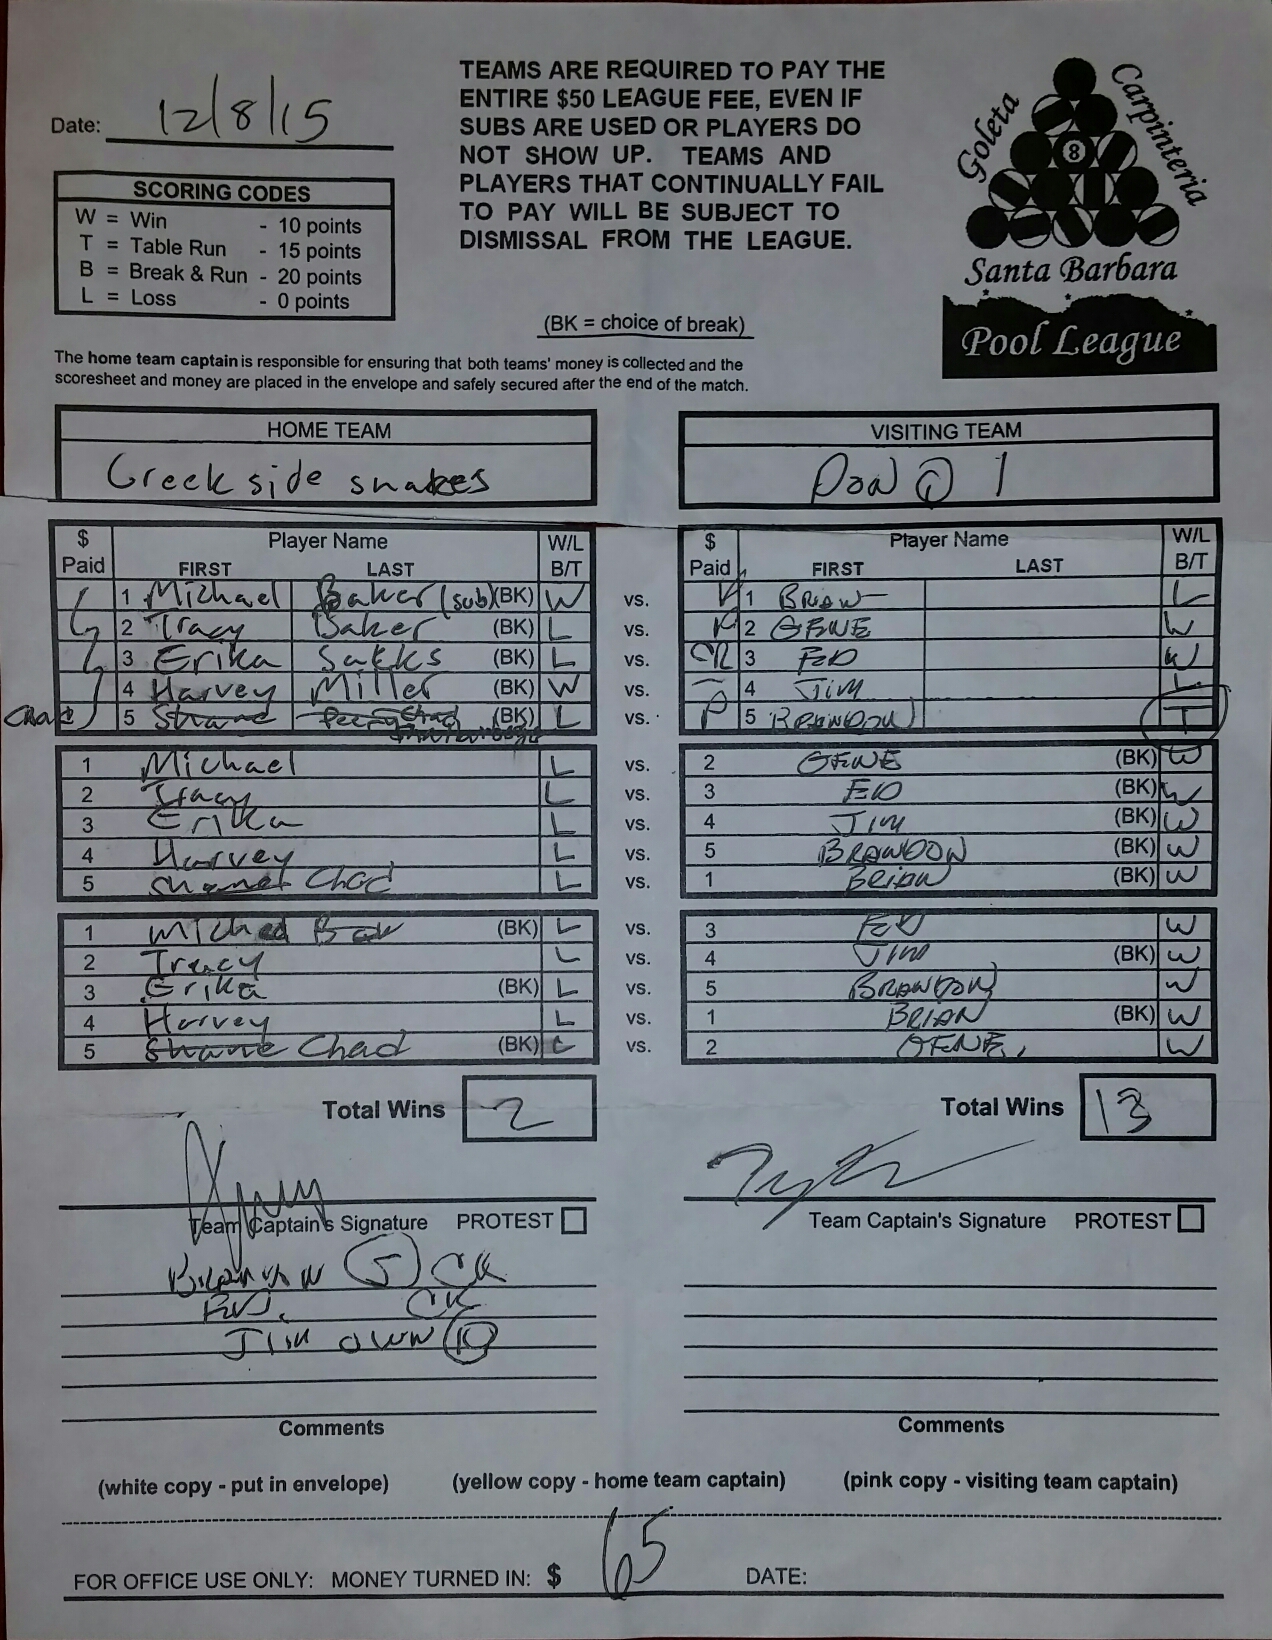 Date: 12/8/15
SCORING CODES
W = Win - 10 points
T = Table Run - 15 points
B = Break & Run - 20 points
L = Loss - 0 points
TEAMS ARE REQUIRED TO PAY THE
ENTIRE $50 LEAGUE FEE, EVEN IF
SUBS ARE USED OR PLAYERS DO
NOT SHOW UP. TEAMS AND
PLAYERS THAT CONTINUALLY FAIL
TO PAY WILL BE SUBJECT TO
DISMISSAL FROM THE LEAGUE.
(BK = choice of break)
Goleta Carpinteria
8
Santa Barbara
Pool League
The home team captain is responsible for ensuring that both teams' money is collected and the
scoresheet and money are placed in the envelope and safely secured after the end of the match.
HOME TEAM VISITING TEAM
Creek side snakes
$ Paid Player Name FIRST LAST W/L B/T
$ Paid Player Name FIRST LAST W/L B/T
1 Michael Baker (sub) (BK) W vs. 1 BRIAN L
2 Tracy Baker (BK) L vs. 2 GENE W
3 Erika Sakks (BK) L vs. 3 ED W
4 Harvey Miller (BK) W vs. 4 JIM L
Chad 5 Shane (BK) L vs. 5 BRANDON T
1 Michael L vs. 2 GENE (BK) W
2 Tracy L vs. 3 ED (BK) W
3 Erika L vs. 4 JIM (BK) W
4 Harvey L vs. 5 BRANDON (BK) W
5 Chad L vs. 1 BRIAN (BK) W
1 (BK) L vs. 3 ED W
2 Tracy L vs. 4 JIM (BK) W
3 Erika (BK) L vs. 5 BRANDON W
4 Harvey L vs. 1 BRIAN (BK) W
5 Shane Chad (BK) L vs. 2 GENE W
Total Wins 2 Total Wins 13
Team Captain's Signature PROTEST Team Captain's Signature PROTEST
BRANDON 5 CK
ED. CK
JIM OWN 10
Comments Comments
(white copy - put in envelope) (yellow copy - home team captain) (pink copy - visiting team captain)
FOR OFFICE USE ONLY: MONEY TURNED IN: $ 65 DATE: